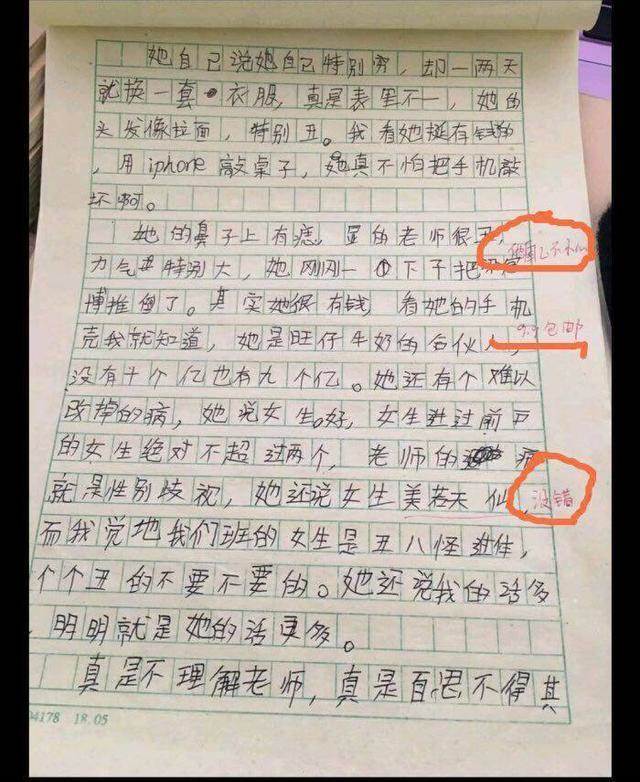 她自己说她自己特别穷，却一两天
就换一套衣服，真是表里不一，她的
头发像拉面，特别丑。我看她挺有钱的
，用iphone敲桌子，她真不怕把手机敲
坏啊。
她的鼻子上有痣，显的老师很丑，
力气特别大，她刚刚一下子把
博推倒了。其实她很有钱，看她的手机
9.9包邮
壳我就知道，她是旺仔牛奶的合伙人，
没有十个亿也有九个亿。她还有个难以
改掉的病，她说女生好，女生进过前门
的女生绝对不超过两个，老师的病
就是性别歧视，她还说女生美若天仙，
没错
而我觉地我们班的女生是丑八怪进住，
个个丑的不要不要的。她还说我的话多
，明明就是她的话更多。
真是不理解老师，真是百思不得其
04178 18.05